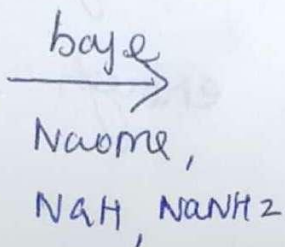 base
NaOMe,
NaH, NaNH2